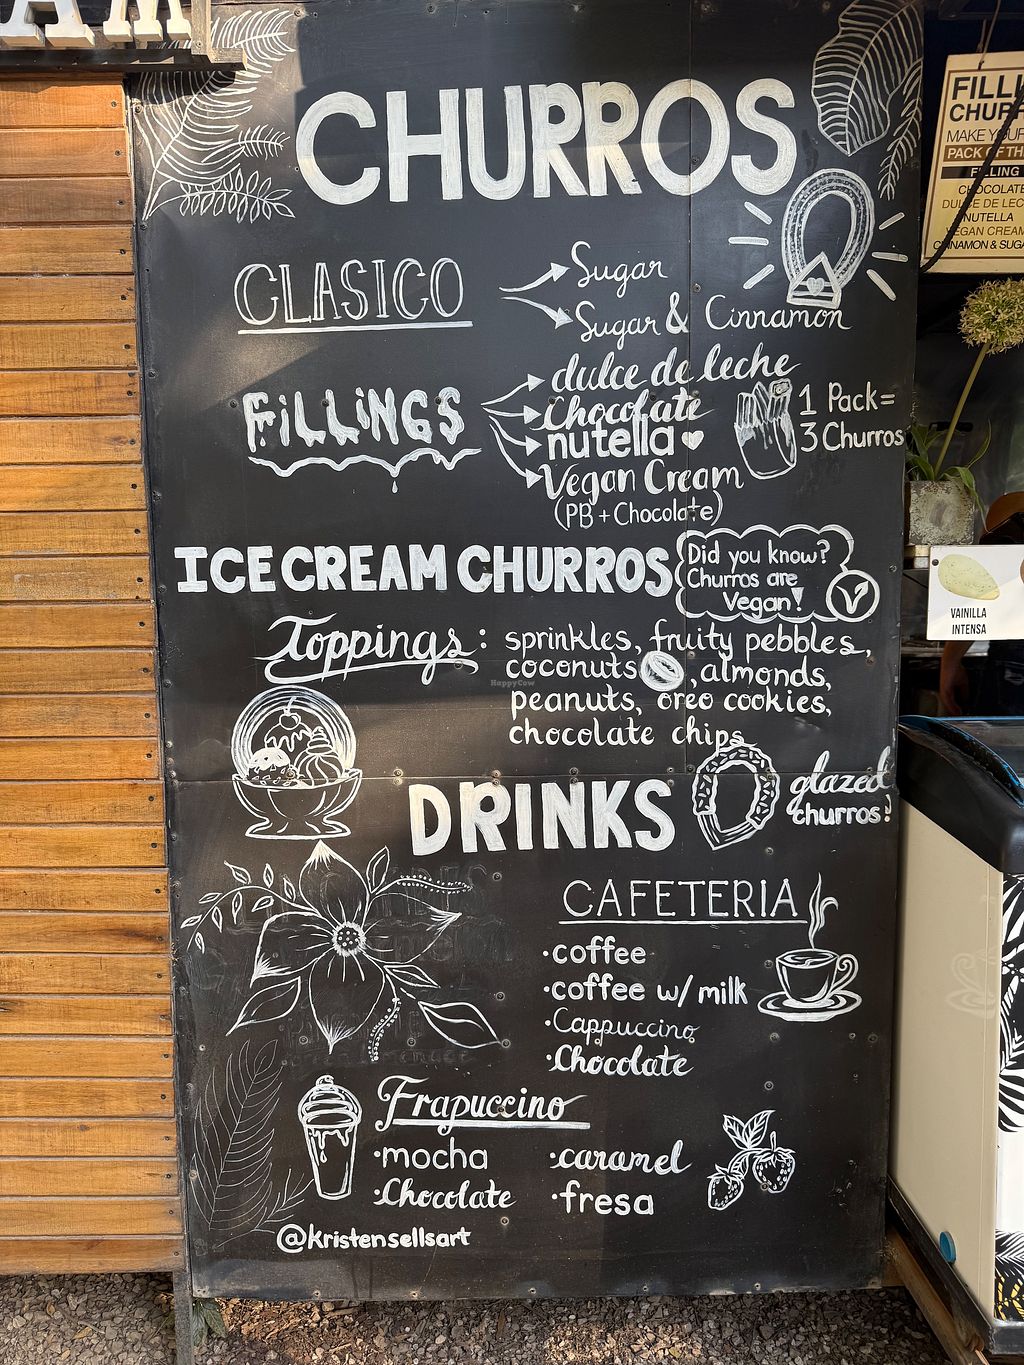 AM
CHURROS
CLASICO
Sugar
Sugar & Cinnamon
FiLLiNGS
dulce de leche
Chocolate
nutella
Vegan Cream
(PB + Chocolate)
1 Pack =
3 Churros
ICE CREAM CHURROS
Did you know?
Churros are
Vegan!
V
Toppings: sprinkles, fruity pebbles,
coconuts, almonds,
peanuts, oreo cookies,
chocolate chips
HappyCow
glazed
churros!
DRINKS
CAFETERIA
·coffee
·coffee w/ milk
·Cappuccino
·Chocolate
Frapuccino
·mocha
·Chocolate
·caramel
·fresa
@kristensellsart
FILLI
CHURR
MAKE YOUR
PACK OF TH
FILLING
CHOCOLATE
DULCE DE LEC
NUTELLA
VEGAN CREAM
CINNAMON & SUGA
VAINILLA
INTENSA